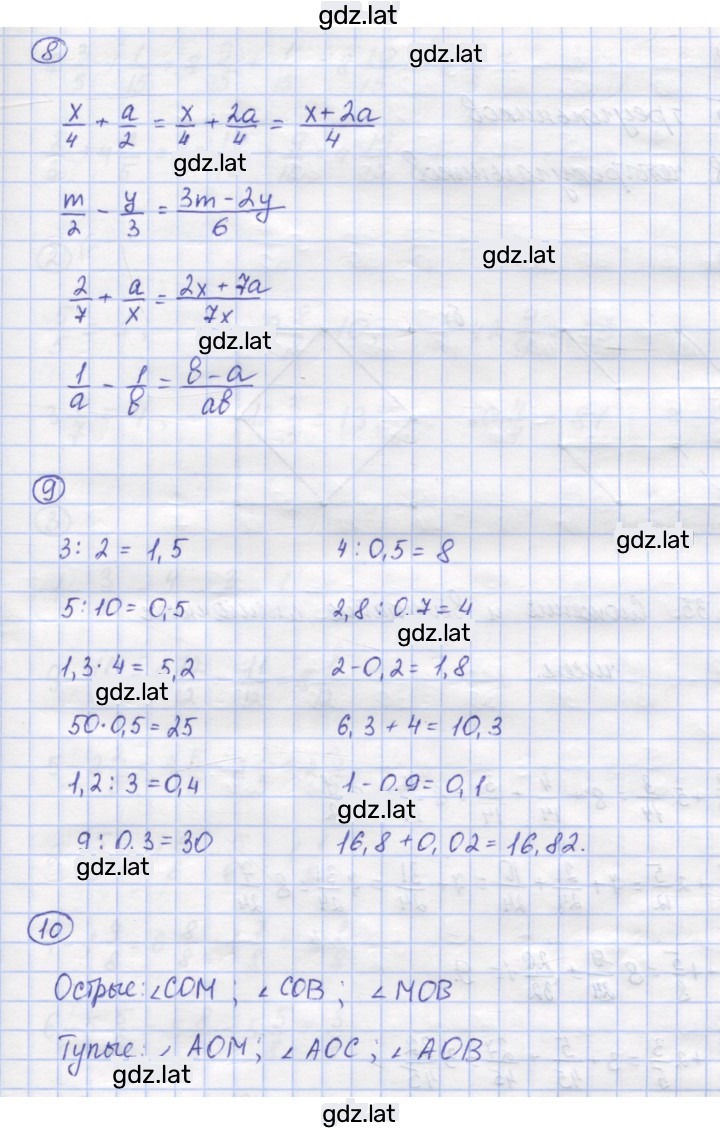 gdz.lat
8
gdz.lat
x/4 + a/2 = x/4 + 2a/4 = x+2a/4
gdz.lat
m/2 - y/3 = 3m-2y/6
gdz.lat
2/7 + a/x = 2x+7a/7x
gdz.lat
1/a - 1/в = в-a/aв
9
gdz.lat
3 : 2 = 1,5 4 : 0,5 = 8
5 : 10 = 0,5 2,8 : 0,7 = 4
gdz.lat
1,3 · 4 = 5,2 2 - 0,2 = 1,8
gdz.lat
50 · 0,5 = 25 6,3 + 4 = 10,3
1,2 : 3 = 0,4 1 - 0,9 = 0,1
gdz.lat
9 : 0,3 = 30 16,8 + 0,02 = 16,82.
gdz.lat
10
Острые: ∠COM ; ∠COB ; ∠MOB
Тупые: ∠AOM ; ∠AOC ; ∠AOB
gdz.lat
gdz.lat